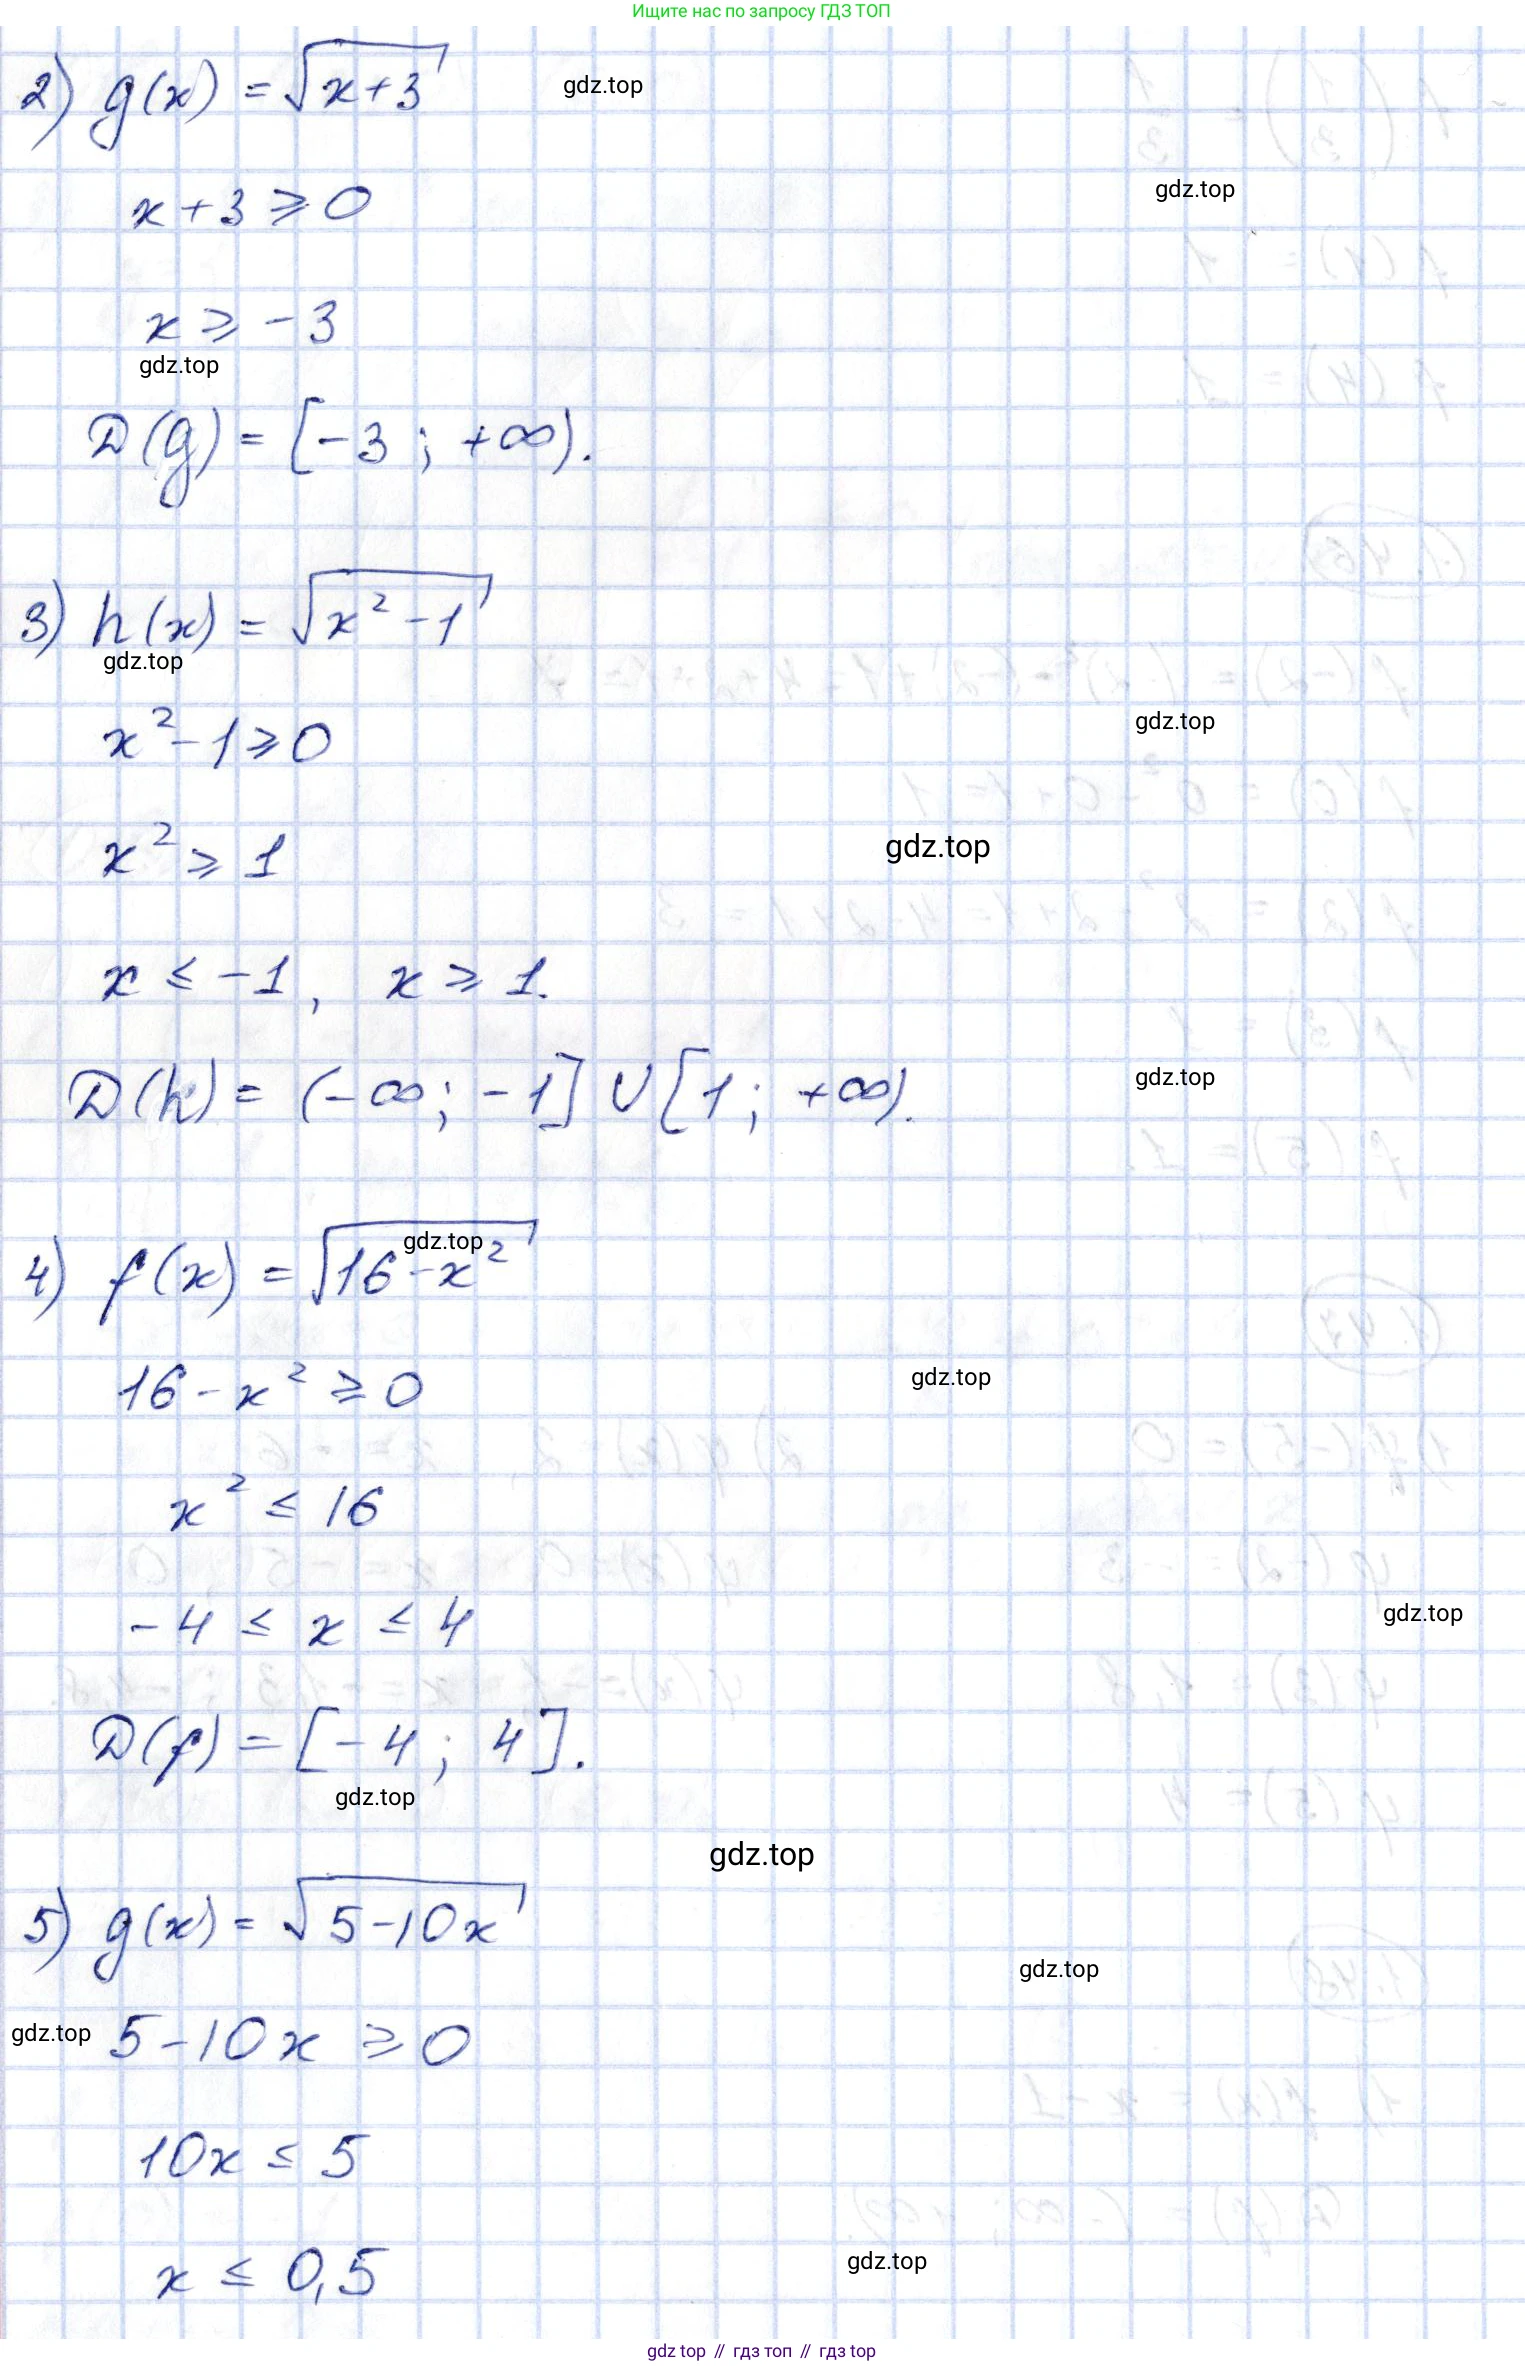 Ищите нас по запросу ГДЗ ТОП
2) g(x) = √(x+3)
gdz.top
gdz.top
x+3 ⩾ 0
x ⩾ -3
gdz.top
D(g) = [-3 ; +∞).
3) h(x) = √(x² -1)
gdz.top
x² -1 ⩾ 0
gdz.top
x² ⩾ 1
gdz.top
x ≤ -1, x ⩾ 1.
D(h) = (-∞; -1] ∪ [1; +∞).
gdz.top
4) f(x) = √(16-x²)
gdz.top
16 - x² ⩾ 0
gdz.top
x² ≤ 16
-4 ≤ x ≤ 4
gdz.top
D(f) = [-4 ; 4].
gdz.top
gdz.top
5) g(x) = √(5-10x)
gdz.top
gdz.top
5-10x ⩾ 0
10x ≤ 5
x ≤ 0,5
gdz.top
gdz top // гдз топ // гдз top